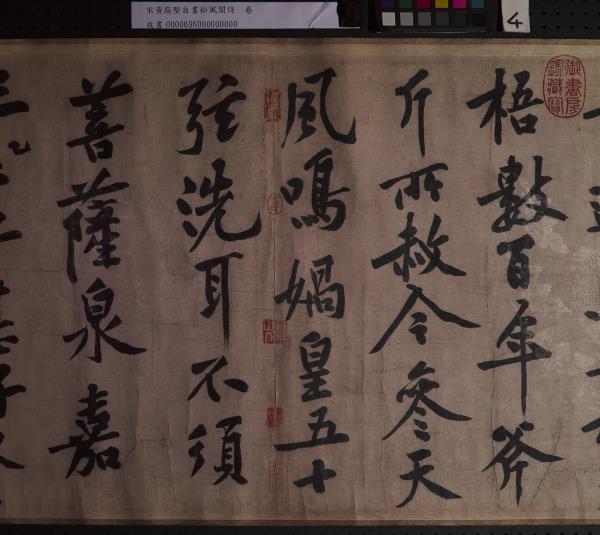 宋黃庭堅自書松風閣詩 卷
故書 000069N000000000
4
御書房鑑藏寶
梧數百年斧
斤所赦今參天
風鳴媧皇五十
弦洗耳不須
菩薩泉嘉